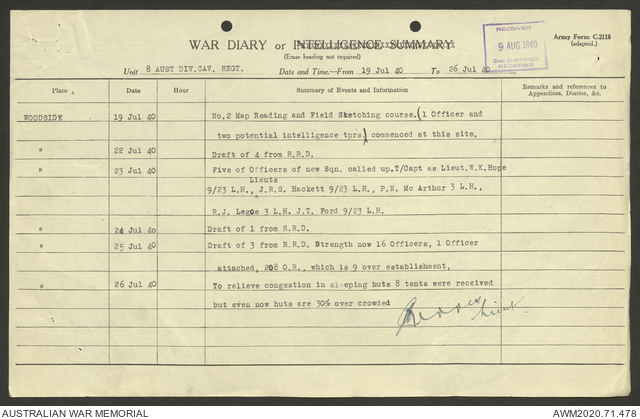 RECEIVED
9 AUG 1940
3RD DISTRICT
RECORDS
Army Form C.2118
(adapted.)
WAR DIARY or INTELLIGENCE SUMMARY
(Erase heading not required)
Unit 8 AUST DIV.CAV. REGT. Date and Time.—From 19 Jul 40 To 26 Jul 40
Place Date Hour Summary of Events and Information Remarks and references to Appendices, Diaries, &c.
WOODSIDE 19 Jul 40 No.2 Map Reading and Field Sketching course.(1 Officer and
two potential intelligence tprs) commenced at this site.
" 22 Jul 40 Draft of 4 from R.R.D.
" 23 Jul 40 Five of Officers of new Sqn. called up.T/Capt as Lieut.W.K.Hope
Lieuts
9/23 L.H., J.R.S. Hackett 9/23 L.H., P.N. Mc Arthur 3 L.H.,
R.J. 3 L.H. J.T. Ford 9/23 L.H.
" 24 Jul 40 Draft of 1 from R.R.D.
" 25 Jul 40 Draft of 3 from R.R.D. Strength now 16 Officers, 1 Officer
attached, 208 O.R., which is 9 over establishment.
" 26 Jul 40 To relieve congestion in sleeping huts 8 tents were received
but even now huts are 30% over crowded
Lieut.
AUSTRALIAN WAR MEMORIAL AWM2020.71.478